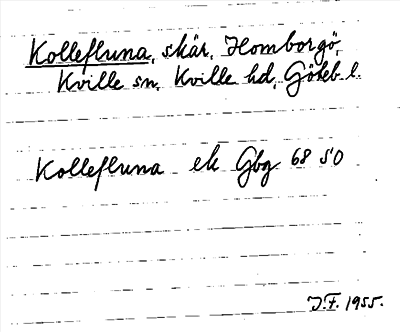 Kollefluna, skär, Homborgö,
Kville sn, Kville hd, Göteb l.
Kollefluna ek Gbg 68 SO
J.F. 1955.